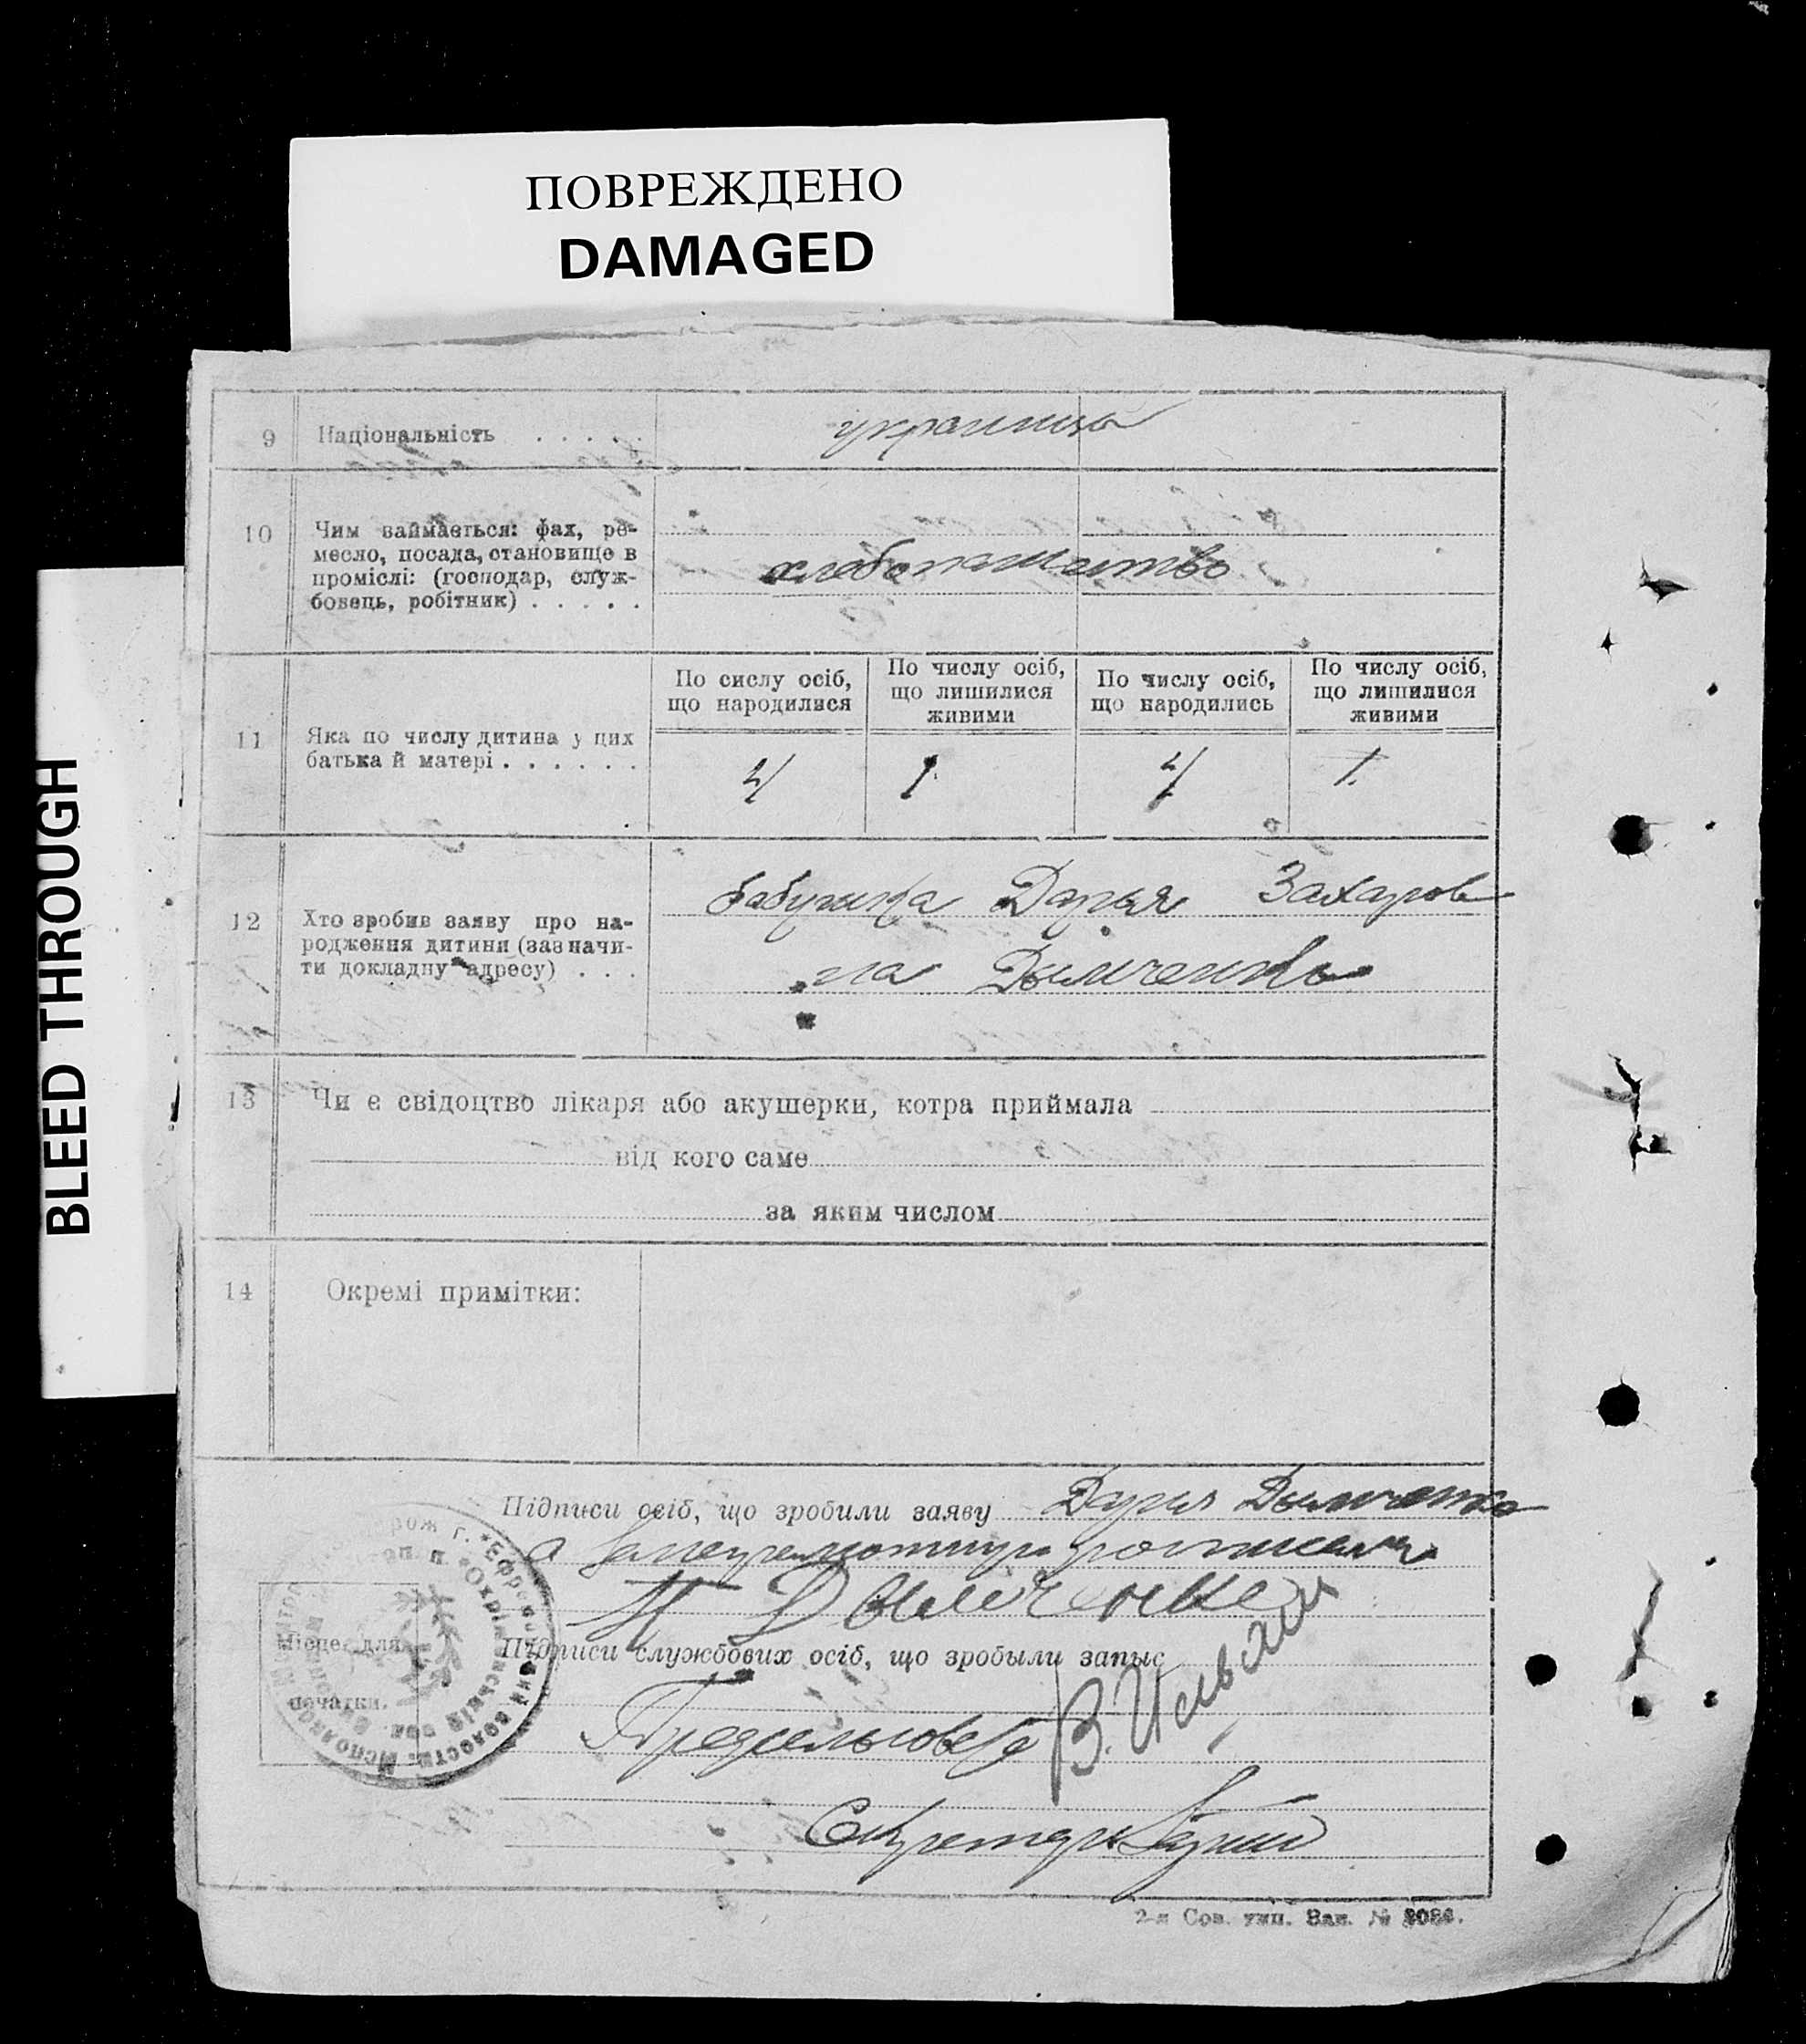 ПОВРЕЖДЕНО
DAMAGED
BLEED THROUGH
9 Національність . . . . .
украинцы
10 Чим займається: фах, ре-
месло, посада, становище в
проміслі: (господар, служ-
бовець, робітник) . . . . .
хлебопашество
11 Яка по числу дитина у цих
батька й матері . . . . . .
По сислу осіб,
що народилися
По числу осіб,
що лишилися
живими
По числу осіб,
що народились
По числу осіб,
що лишилися
живими
4 1 4 1.
12 Хто зробив заяву про на-
родження дитини (зазначи-
ти докладну адресу) . . .
бабушка Дарья Захаров
на Дымченко
13 Чи є свідоцтво лікаря або акушерки, котра приймала
від кого саме
за яким числом
14 Окремі примітки:
Підписи осіб, що зробили заяву Дарья Дымченко
а за неграмотную росписался
Дымченко
Підписи службових осіб, що зробылы запыс
Місце для
печатки.
Предсельсовета
В.
Секретарь
2-я Сов. тип. Зак. №